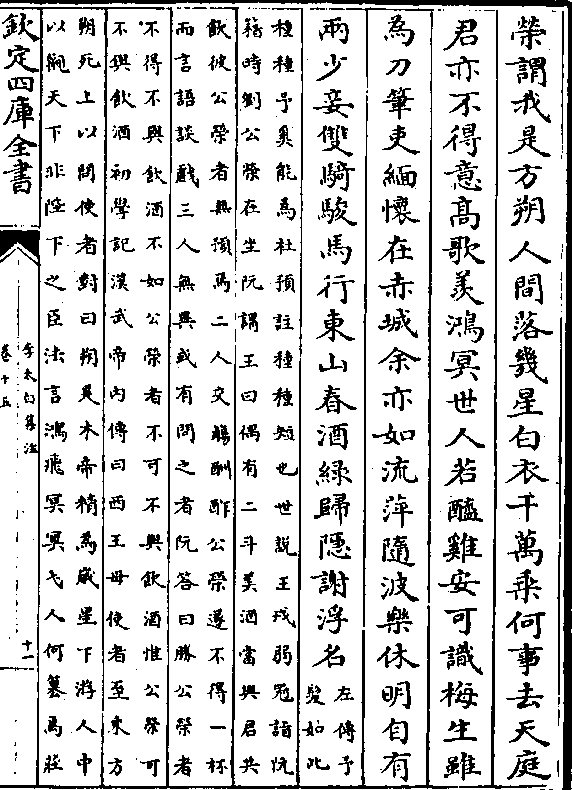 榮謂我是方朔人間落幾星白衣千萬乘何事去天庭
君亦不得意髙歌羡鴻冥世人若醯雞安可識梅生雖
為刀筆吏緬懷在赤城余亦如流萍隨波樂休明自有
兩少妾雙騎駿馬行東山春酒綠歸隱謝浮名
左傳予
髮如此
種種予奚能為杜預註種種短也世說王戎弱冠詣阮
籍時劉公榮在坐阮謂王曰偶有二斗美酒當與君共
飲彼公榮者無預焉二人交觴酬酢公榮遂不得一杯
而言語談戲三人無異或有問之者阮答曰勝公榮者
不得不與飲酒不如公榮者不可不與飲酒惟公榮可
不與飲酒初學記漢武帝內傳曰西王母使者至東方
朔死上以問使者對曰朔是木帝精為歲星下游人中
以觀天下非陛下之臣法言鴻飛冥冥弋人何篡焉莊
欽定四庫全書
李太白集注
卷十五
十一